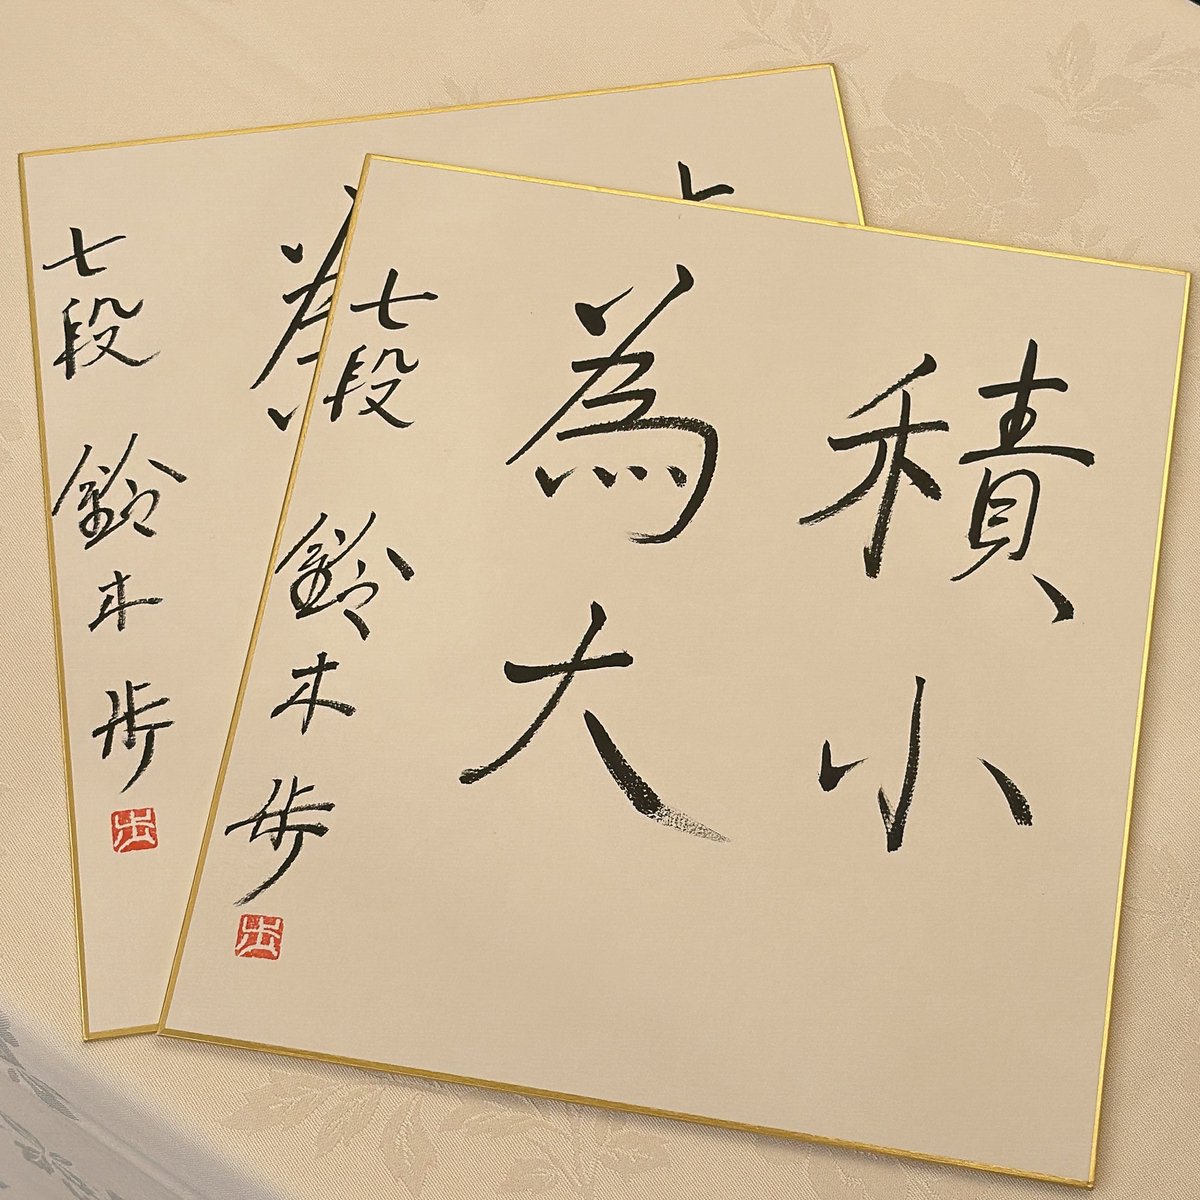 積小
為大
七段 鈴木歩
歩
七段 鈴木歩
歩